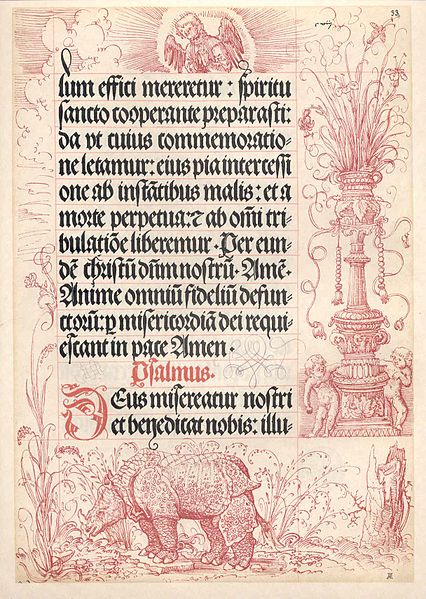 33
lum effici mereretur : spiritu
sancto cooperante preparasti:
da vt cuius commemoratio-
ne letamur: eius pia intercessi
one ab instãtibus malis: et a
morte perpetua: ⁊ ab om̃i tri
bulatiõe liberemur. Per eun-
dẽ christũ dñm nostrũ. Amẽ.
Anime omniũ fideliũ defun-
ctorũ: ꝑ misericordiã dei requi-
escant in pace Amen.
Psalmus.
DEus misereatur nostri
et benedicat nobis: illu-